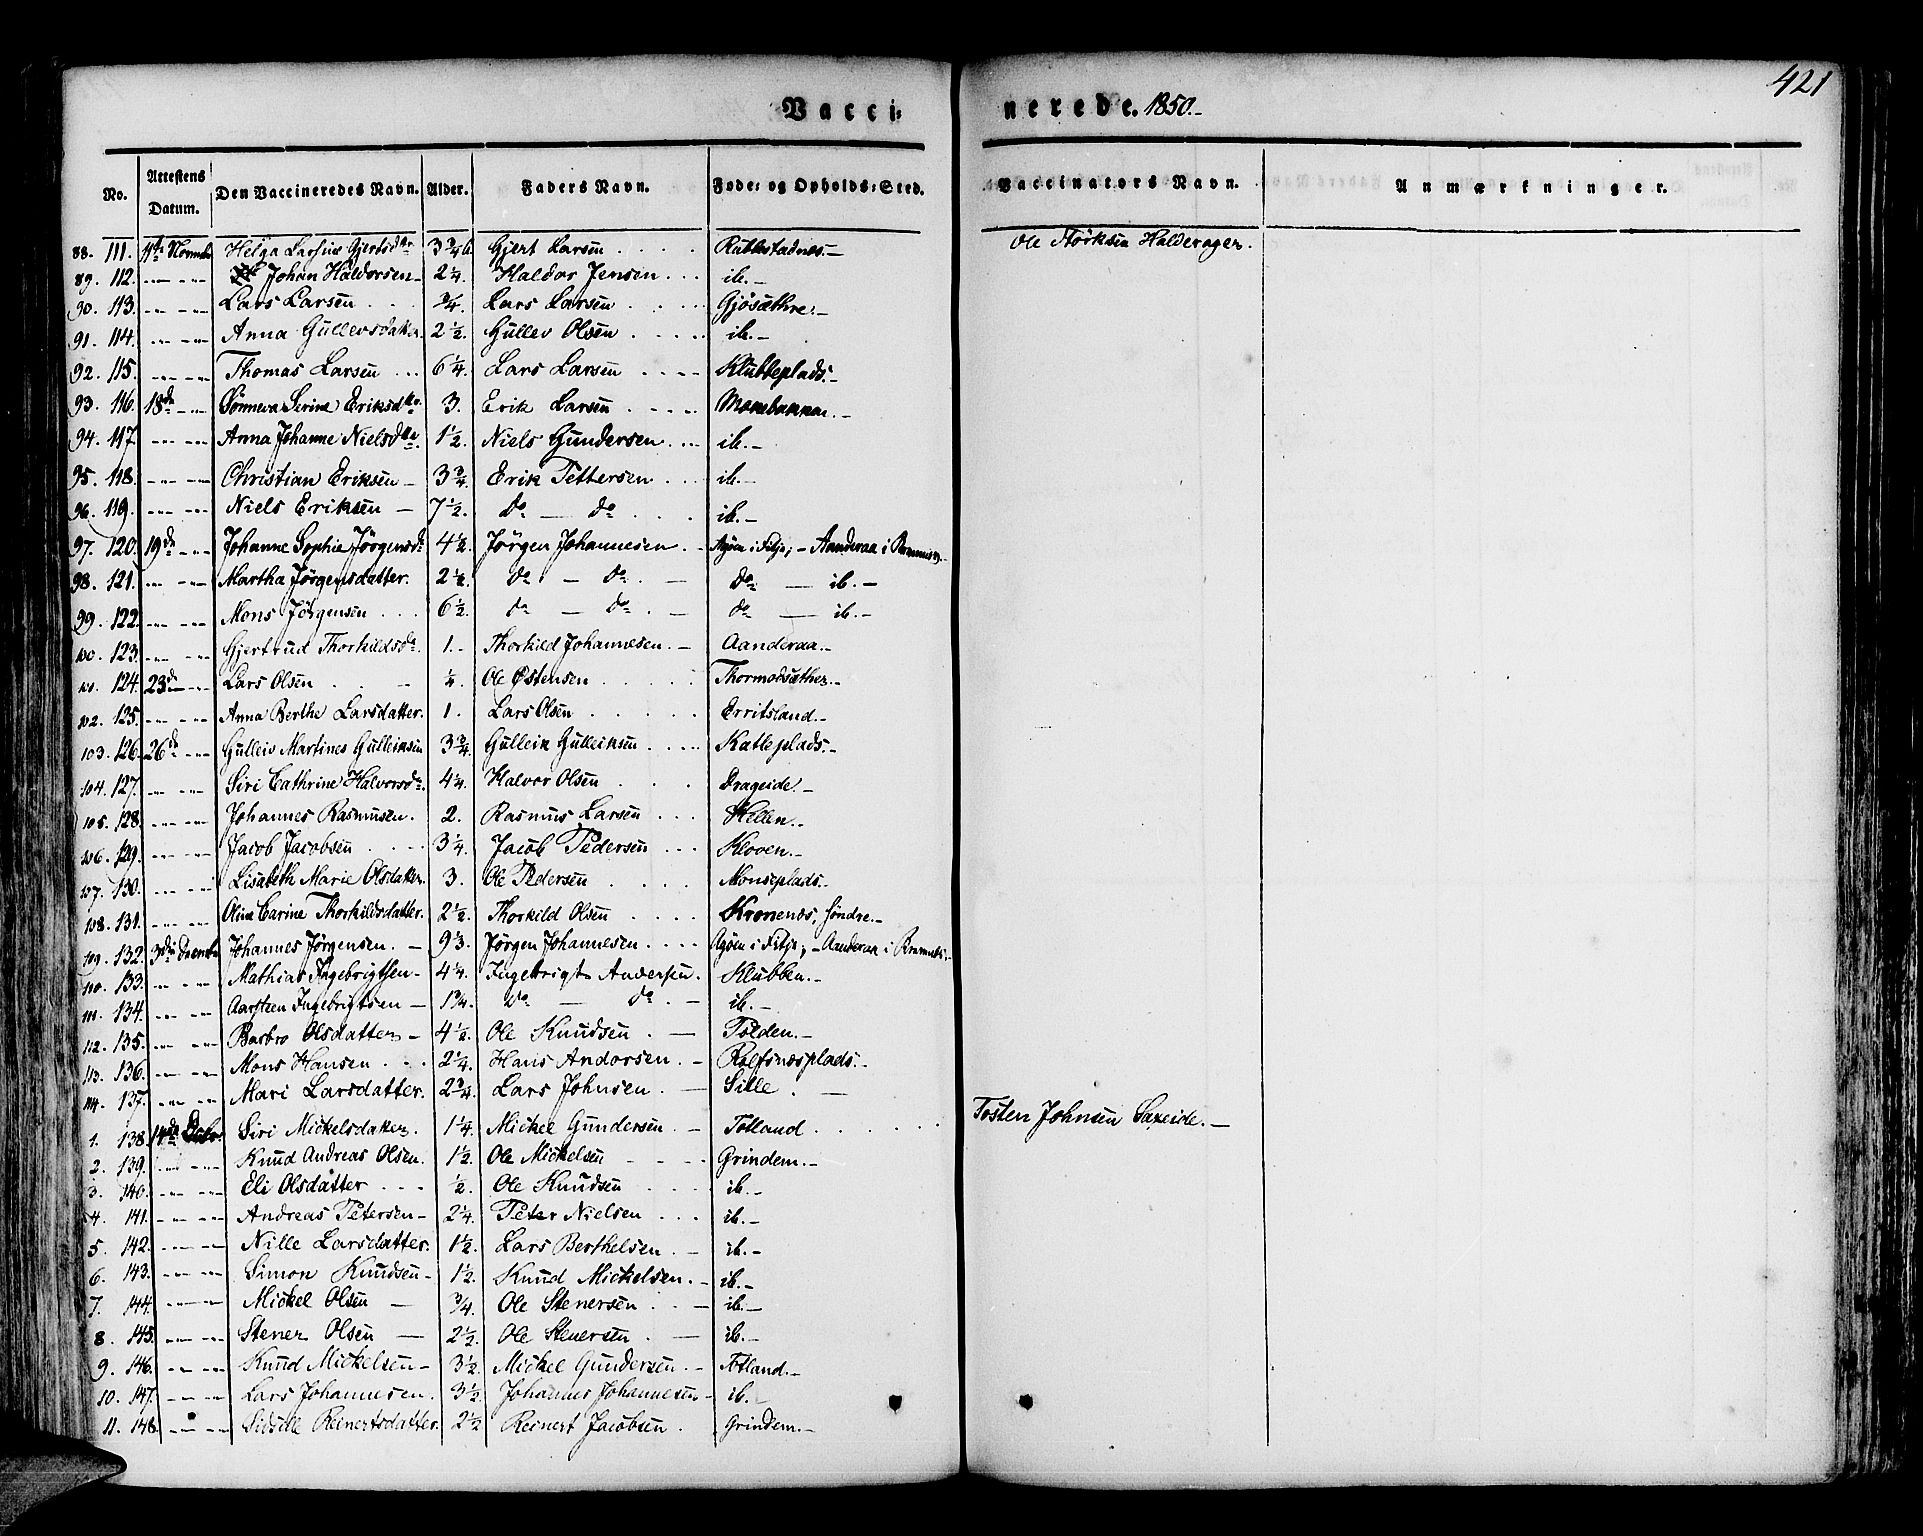 421
Vacci= nerede. 1850.-
No. Attestens Datum. Den Vaccineredes Navn. Alder. Faders Navn. Føde= og Opholds=Sted. Vaccinators Navn. Anmærkninger.
88. 111. 11te Novembr Helga Larsine Gjertsdtr 3 3/4 Gjert Larsen Rubbestadnes.- Ole Størksen Halderager.
89. 112. Johan Haldorsen 2 1/4. Haldor Jensen ib.-
90. 113. Lars Larsen 3/4. Lars Larsen Gjøsæthre.-
91. 114. Anna Gullevsdatter 2 1/2. Gullev Olsen ib.-
92. 115. Thomas Larsen 6 1/4. Lars Larsen Klubbeplads.-
93. 116. 18de Sønneva Serine Eriksdtr 3. Erik Larsen
94. 117. Anna Johanne Nielsdtr 1 1/2. Niels Gundersen ib.-
95. 118. Christian Eriksen 3 3/4. Erik Pettersen ib.-
96. 119. Niels Eriksen 7 1/2. do - do ib.-
97. 120. 19de Johanne Sophie Jørgensd. 4 1/2. Jørgen Johannesen Agøen i Fitje; - Aanderaa i
98. 121. Martha Jørgensdatter. 2 1/2. do - do do - ib.-
99. 122. Mons Jørgensen 6 1/2. do - do do - ib.-
100. 123. Gjertrud Thorkildsd. 1. Thorkild Johannesen.- Aanderaa.-
101. 124. 23de Lars Olsen 1/4. Ole Østensen Thormodsæther.-
102. 125. Anna Berthe Larsdatter. 1. Lars Olsen Erritsland.-
103. 126. 26de Gulleiv Martines Gulleiksen 3 3/4. Gulleik Gulleiksen Katleplads.-
104. 127. Siri Cathrine Halvorsd. 4 1/4. Halvor Olsen Drageide.-
105. 128. Johannes Rasmusen. 2. Rasmus Larsen Hellen.-
106. 129. Jacob Jacobsen 3 1/4. Jacob Pedersen Kloven.-
107. 130. Lisabeth Marie Olsdatter. 3. Ole Pedersen Monseplads.-
108. 131. Olina Carine Thorkildsdatter. 2 1/2. Thorkild Olsen Kronenes, søndre.-
109. 132. 3die Decembr Johannes Jørgensen.- 9 1/3. Jørgen Johannesen Agøen i Fitje; - Aanderaa i
110. 133. Mathias Ingebrigtsen- 4 1/4. Ingebrigt Andersen. Klubben.-
111. 134. Aarsteen Ingebrigtsen- 1 3/4. do - do ib.-
112. 135. Barbro Olsdatter- 4 1/2. Ole Knudsen Tolden.-
113. 136. Mons Hansen 2 1/4. Hans Andorsen.- Rolfsnesplads.-
114. 137. Mari Larsdatter. 2 3/4. Lars Johnsen Sille
1. 138. 14de Siri Mickelsdatter. 1 1/4. Mickel Gundersen.- Totland Tosten Johnsen Saxeide.-
2. 139. Knud Andreas Olsen. 1 1/2. Ole Mickelsen Grindem.-
3. 140. Eli Olsdatter 1/2. Ole Knudsen ib.-
4. 141. Andreas Petersen- 2 1/4. Peter Nielsen ib.-
5. 142. Nille Larsdatter. 1 1/2. Lars Berthelsen.- ib.-
6. 143. Simon Knudsen- 1 1/2. Knud Mickelsen.- ib.-
7. 144. Mickel Olsen 3/4. Ole Stenersen ib.-
8. 145. Stener Olsen 2 1/2. Ole Stenersen ib.-
9. 146. Knud Mickelsen- 3 1/2. Mickel Gundersen.- Totland.-
10. 147. Lars Johannesen. 3 1/2. Johannes Johannesen- ib.
11. 148. Sidsille Reinertsdatter. 2 1/2 Reinert Jacobsen. Grindem.-